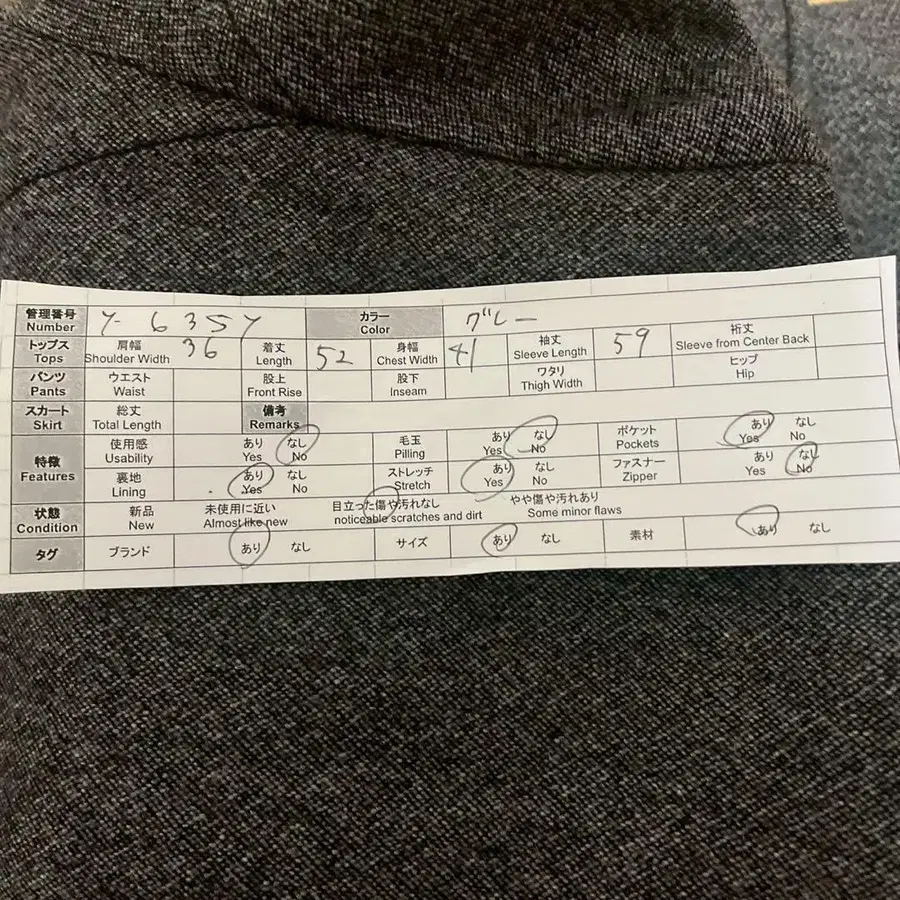 管理番号 Number Y- 6357 カラー Color グレー
トップス Tops 肩幅 Shoulder Width 36 着丈 Length 52 身幅 Chest Width 41 袖丈 Sleeve Length 59 裄丈 Sleeve from Center Back
パンツ Pants ウエスト Waist 股上 Front Rise 股下 Inseam ワタリ Thigh Width ヒップ Hip
スカート Skirt 総丈 Total Length 備考 Remarks
特徴 Features 使用感 Usability あり Yes なし No 毛玉 Pilling あり Yes なし No ポケット Pockets あり Yes なし No
裏地 Lining あり Yes なし No ストレッチ Stretch あり Yes なし No ファスナー Zipper あり Yes なし No
状態 Condition 新品 New 未使用に近い Almost like new 目立った傷や汚れなし noticeable scratches and dirt やや傷や汚れあり Some minor flaws
タグ ブランド あり なし サイズ あり なし 素材 あり なし